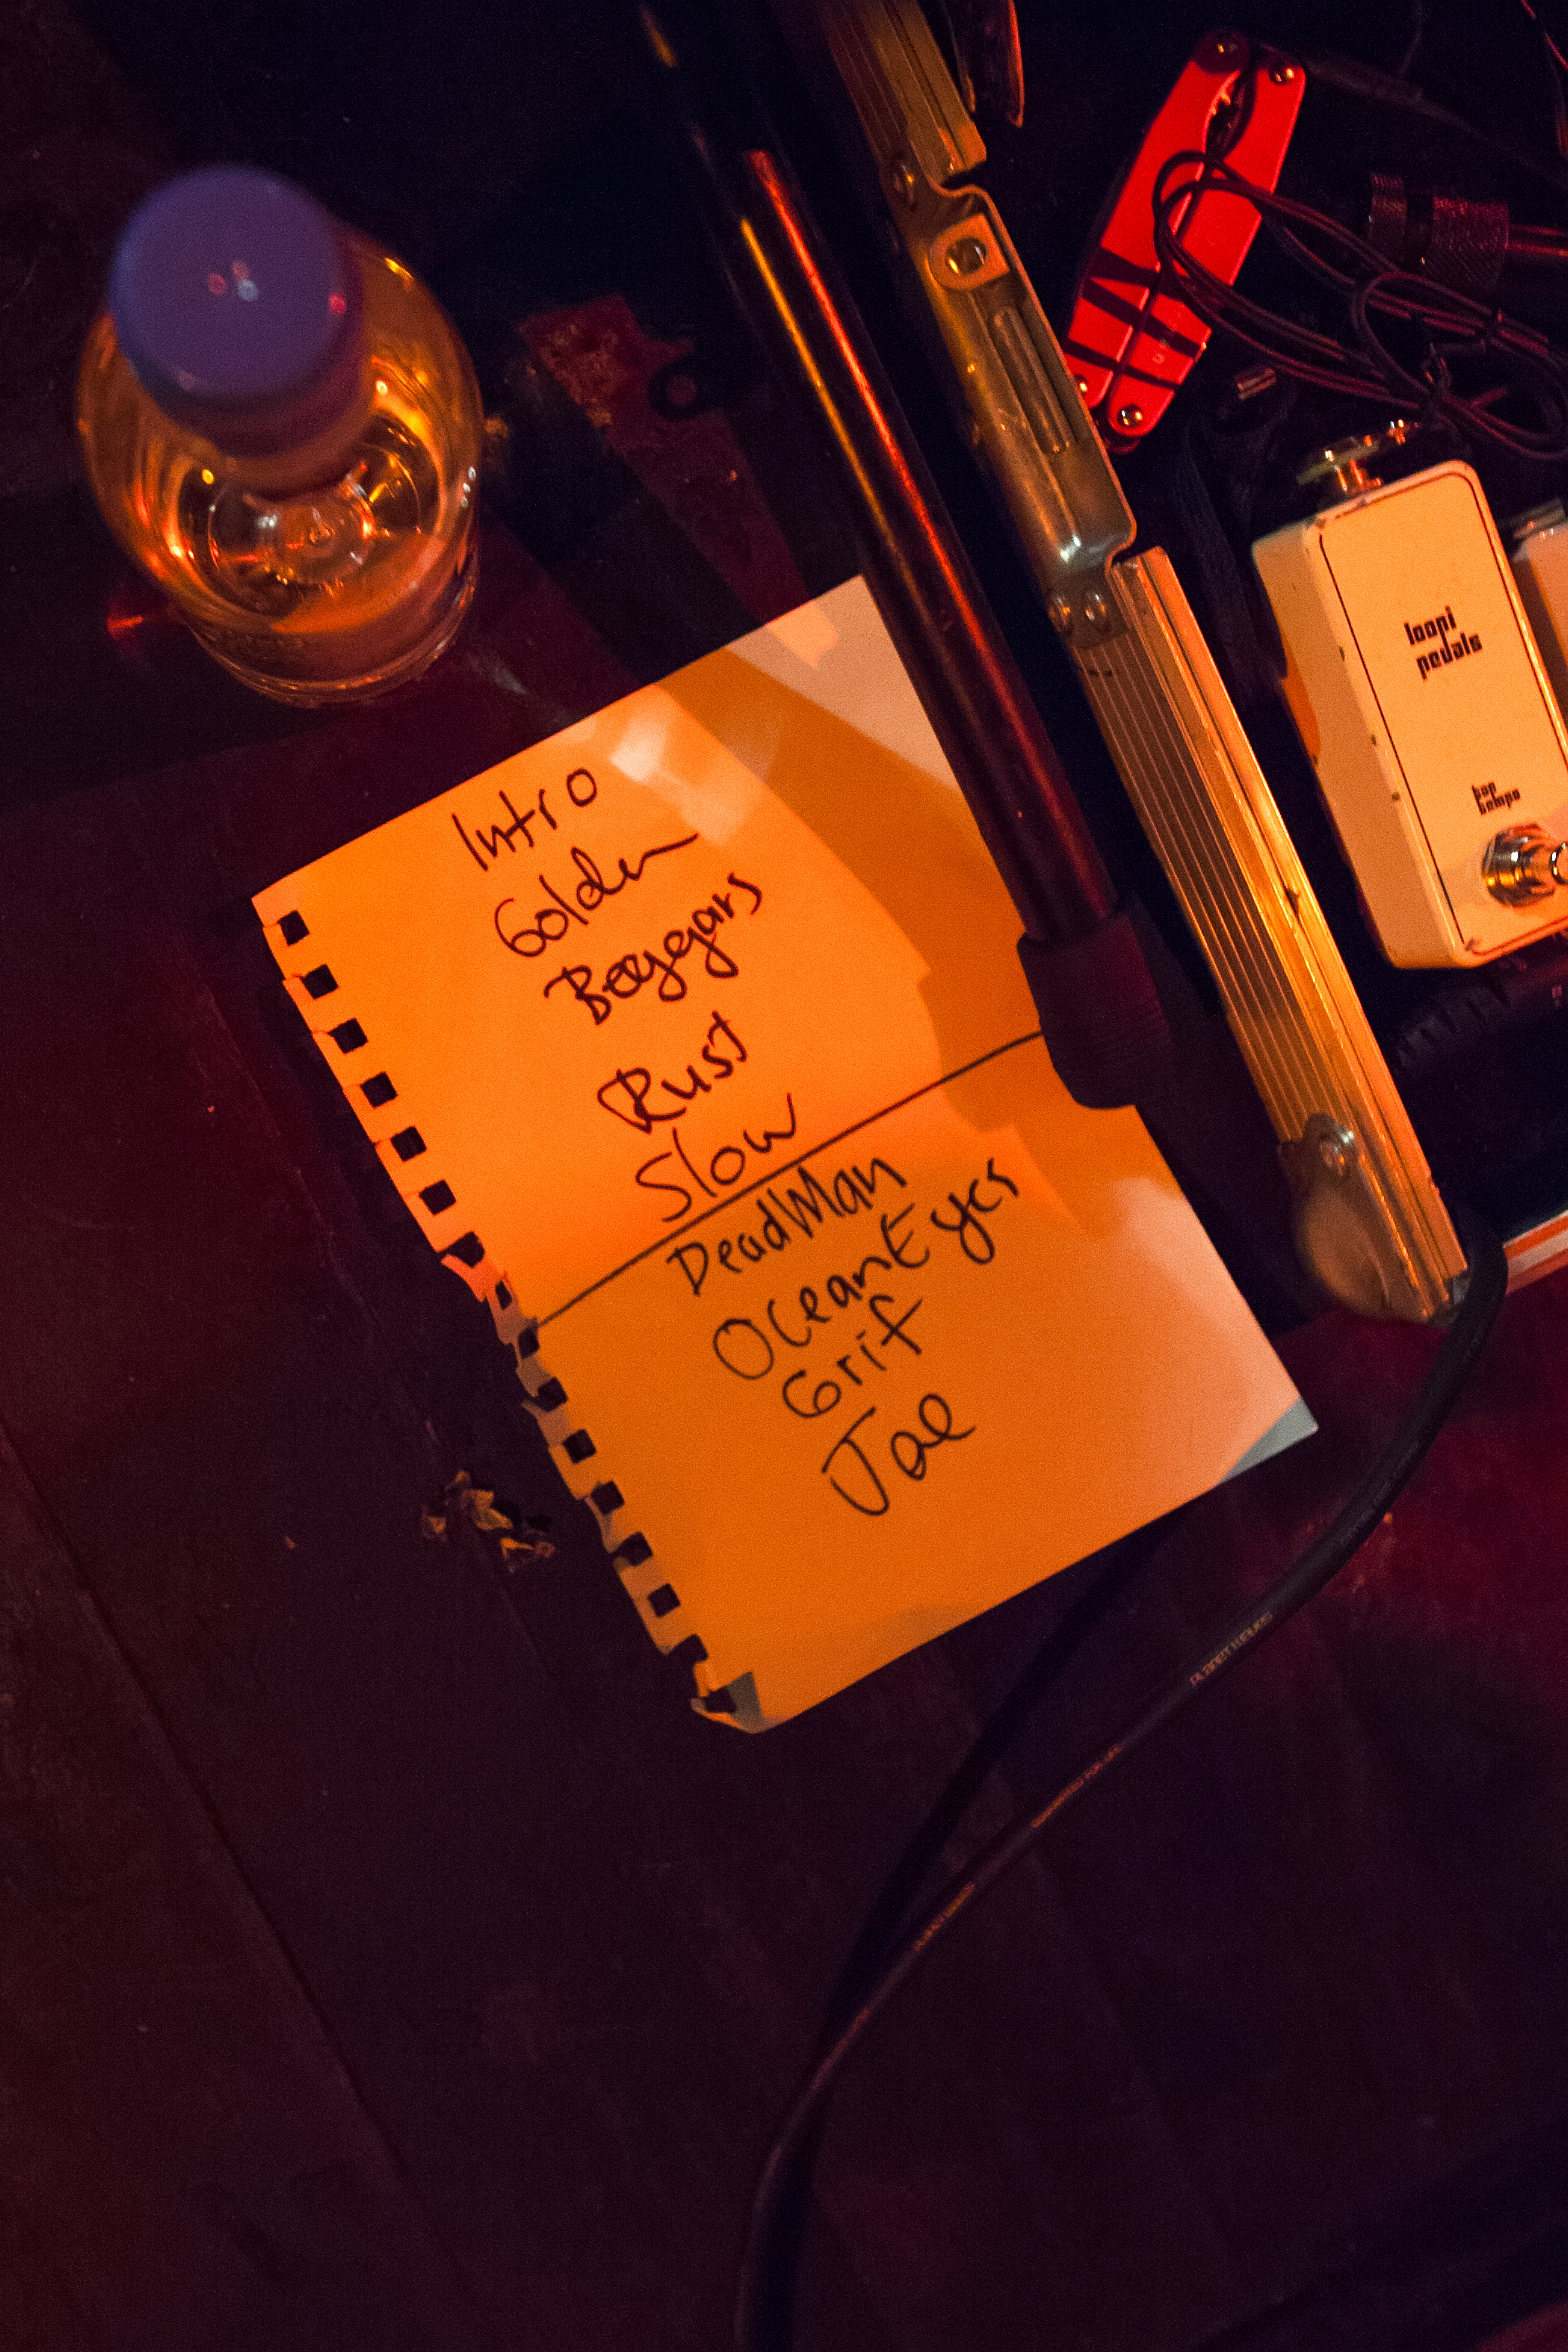 Intro
Golden
Beggars
Rust
Slow
DeadMan
OceanEyes
Grif
Joe
loopi
pedals
tap
tempo
PLANET WAVES